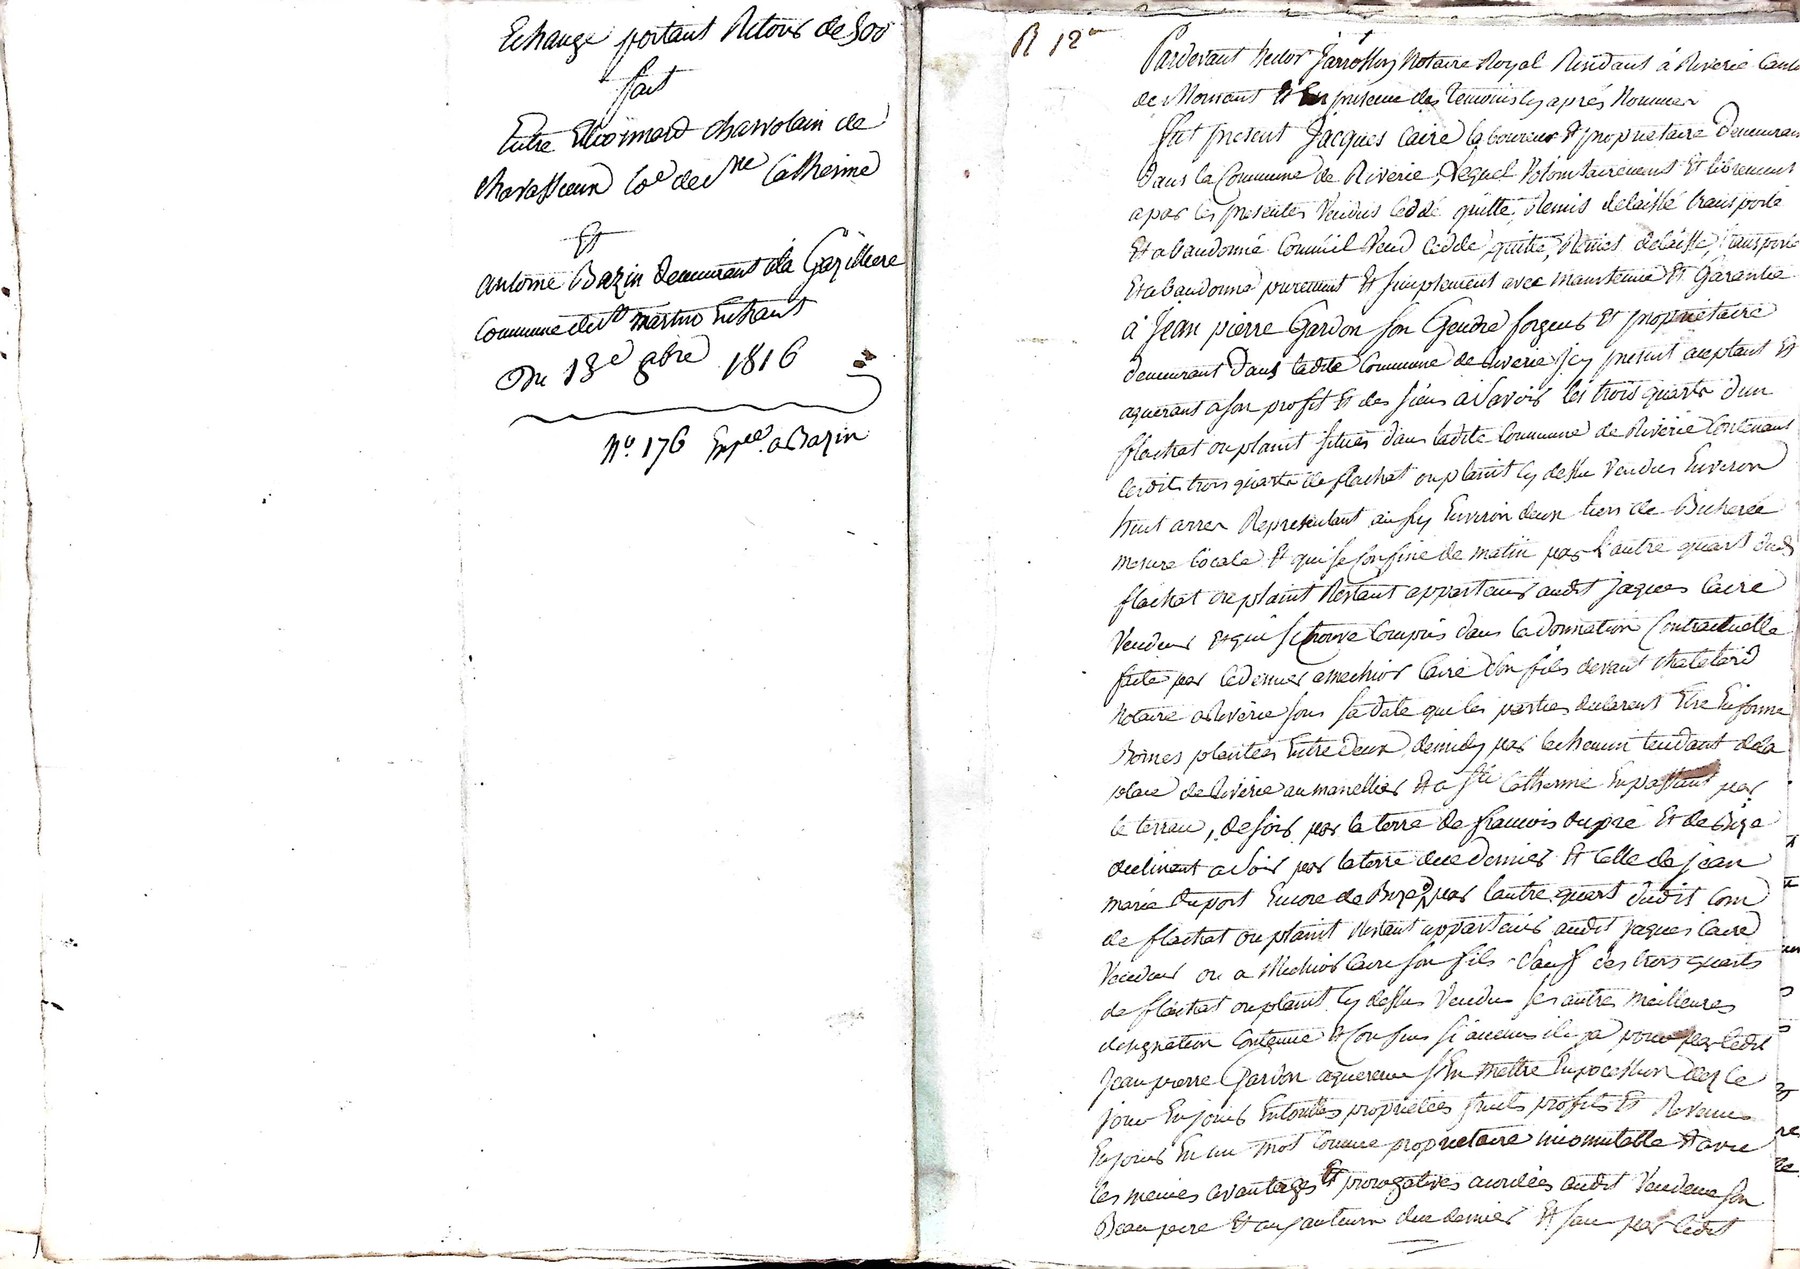 Echange portant Retour de 500
fait
Entre Etiennard charvolain de
chavassieux Coe de Ste Catherine
Et
antoine Bazin demeurant ala Gazilliere
Commune de St martin En haut
Du 13e 8bre 1816
No. 176 Exp.ée a Bazin
R 12
Pardevant hector Jarrossin Notaire Royal Residant á Riverie Canton
de Mornant Et En presence des Temoins cy aprés Nommer
fut present Jacques Caire laboureur Et propriétaire demeurant
dans la Commune de Riverie, Lequel Volontairement Et librement
a par les presentes Vendus Ceddé quitté, Remis delaissé transporté
Et abandonné Comme il Vend Cedde, quitte, Remes délaisse, transporte
Et abandonne purement Et simplement avec maintenue Et Garantie
á Jean pierre Gardon son Gendre forgeur Et propriétaire
demeurant dans ladite Commune de Riverie jcy present aceptant Et
aquerant a son profit Et des siens a Savoir les trois quarts dun
flachat ou planit situés dans ladite Commune de Riverie Contenant
lesdits trois quarts de flachat ou planit cy dessu Vendus Environ
huit arrer Representant aussy Environ deux tiers de Bicherée
mesure locale Et qui se Confine de matin par l'autre quart dudt
flachat ou planit Restant appartenir audit jaques Caire
Vendeur Et qui se trouve Compris dans la donnation Contractuelle
faite par ce dernier a mechior Caire Son fils devant chatelard
Notaire a Riverie sous sa date que les parties declarent Etre En forme
Bornes plantées Entre deux, de midy par le chemin tendant de la
place de Riverie au manellier Et a Ste Catherine En passant par
le terrau, de soir par la terre de francois dupré Et de Bize
declinent a Soir par la terre du dernier Et Celle de jean
marie duport Encore de Bize par lautre quart dudit Com
de flachat ou planit Restant appartenir audit jaques Caire
Vendeur ou a Mechior Caire son fils Sauf des trois quarts
de flachat ou planit cy dessus Vendu ses autres meilleures
désignation Contenue Et Confins si aucuns il y a pour par ledit
Jean pierre Gardon aquereur s'En mettre En possession dez ce
jour En jouir En toutes propriétées fruits profits Et Revenus
En jouir En un mot Comme propriétaire incomutable Et avec
les mêmes avantages Et prerogatives acordées audit Vendeur son
Beau pere Et aux auteurs du dernier Et sau par ledit